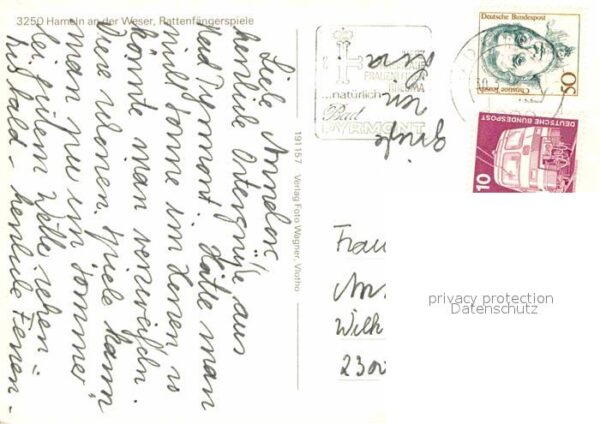 3250 Hameln an der Weser, Rattenfängerspiele
Liebe Annelene
herzliche Ostergrüße aus
Bad Pyrmont. Hätte man
nicht Sonne im Herzen, so
könnte man verzweifeln.
Diese schönen Spiele kann
man nur im Sommer
bei gutem sehen -
bis bald - herzliche Ferien-
grüße
von
191157 Verlag Foto Wagner, Vlotho
HERZ
FRAUENLEIDEN
RHEUMA
...natürlich
Bad
PYRMONT
Deutsche Bundespost
50
DEUTSCHE BUNDESPOST
10
Frau
Wilh
2300
privacy protection
Datenschutz